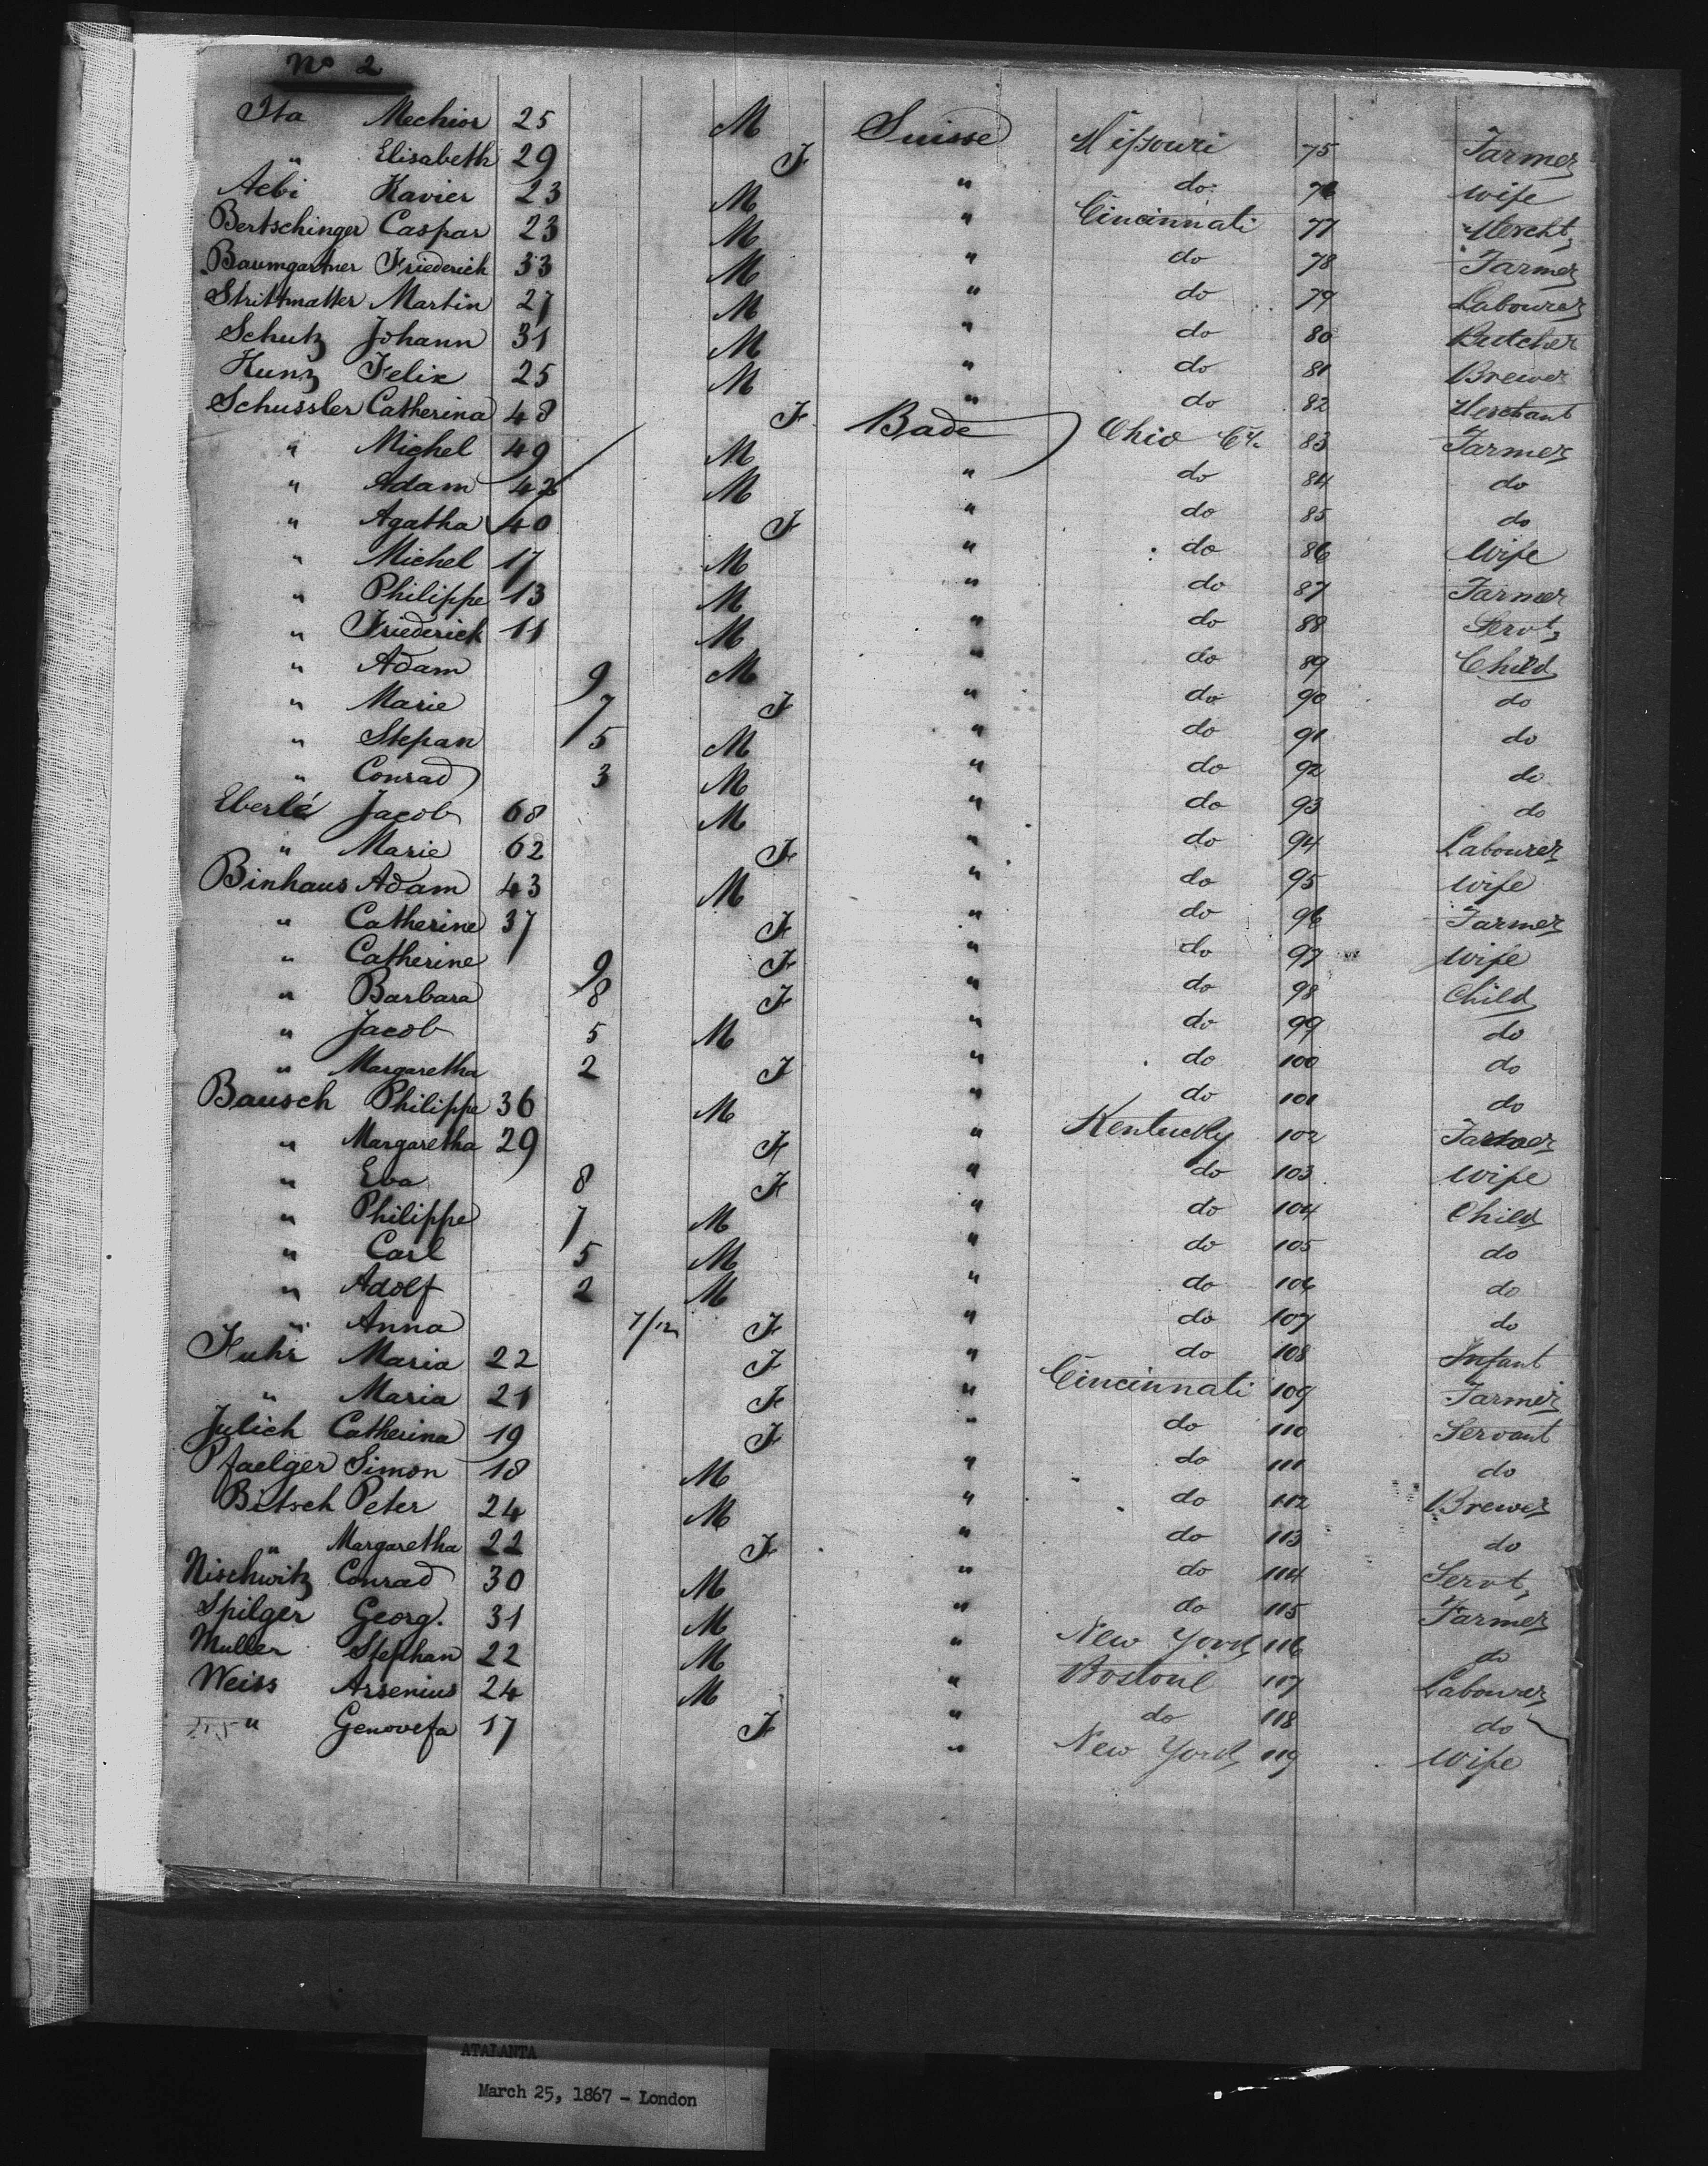 No 2
Ita Mechior 25 M Suisse Missouri 75 Farmer
" Elisabeth 29 F " do 76 Wife
Aebi Xavier 23 M " Cincinnati 77 Mercht
Bertschinger Caspar 23 M " do 78 Farmer
Baumgartner Friederich 33 M " do 79 Labourer
Strittmatter Martin 27 M " do 80 Butcher
Schutz Johann 31 M " do 81 Brewer
Kunz Felix 25 M " do 82 Merchant
Schussler Catherina 48 F Bade Ohio Cy. 83 Farmer
" Michel 49 M " do 84 do
" Adam 42 M " do 85 do
" Agatha 40 F " do 86 Wife
" Michel 17 M " do 87 Farmer
" Philippe 13 M " do 88 Servt
" Friederich 11 M " do 89 Child
" Adam 9 M " do 90 do
" Marie 7 F " do 91 do
" Stepan 5 M " do 92 do
" Conrad 3 M " do 93 do
Eberlé Jacob 68 M " do 94 Labourer
" Marie 62 F " do 95 Wife
Binhaus Adam 43 M " do 96 Farmer
" Catherine 37 F " do 97 Wife
" Catherine 9 F " do 98 Child
" Barbara 8 F " do 99 do
" Jacob 5 M " do 100 do
" Margaretha 2 F " do 101 do
Bausch Philippe 36 M " Kentucky 102 Farmer
" Margaretha 29 F " do 103 Wife
" Eva 8 F " do 104 Child
" Philippe 7 M " do 105 do
" Carl 5 M " do 106 do
" Adolf 2 M " do 107 do
" Anna 7/12 F " do 108 Infant
Fuhr Maria 22 F " Cincinnati 109 Farmer
" Maria 21 F " do 110 Servant
Julich Catherina 19 F " do 111 do
Pfaelger Simon 18 M " do 112 Brewer
Bitsch Peter 24 M " do 113 do
" Margaretha 22 F " do 114 Servt
Nischwitz Conrad 30 M " do 115 Farmer
Spilger Georg. 31 M " New York 116 do
Muller Stephan 22 M " Bostoul 117 Labourer
Weiss Arsenius 24 M " do 118 do
" Genovefa 17 F " New York 119 Wife
ATALANTA
March 25, 1867 - London